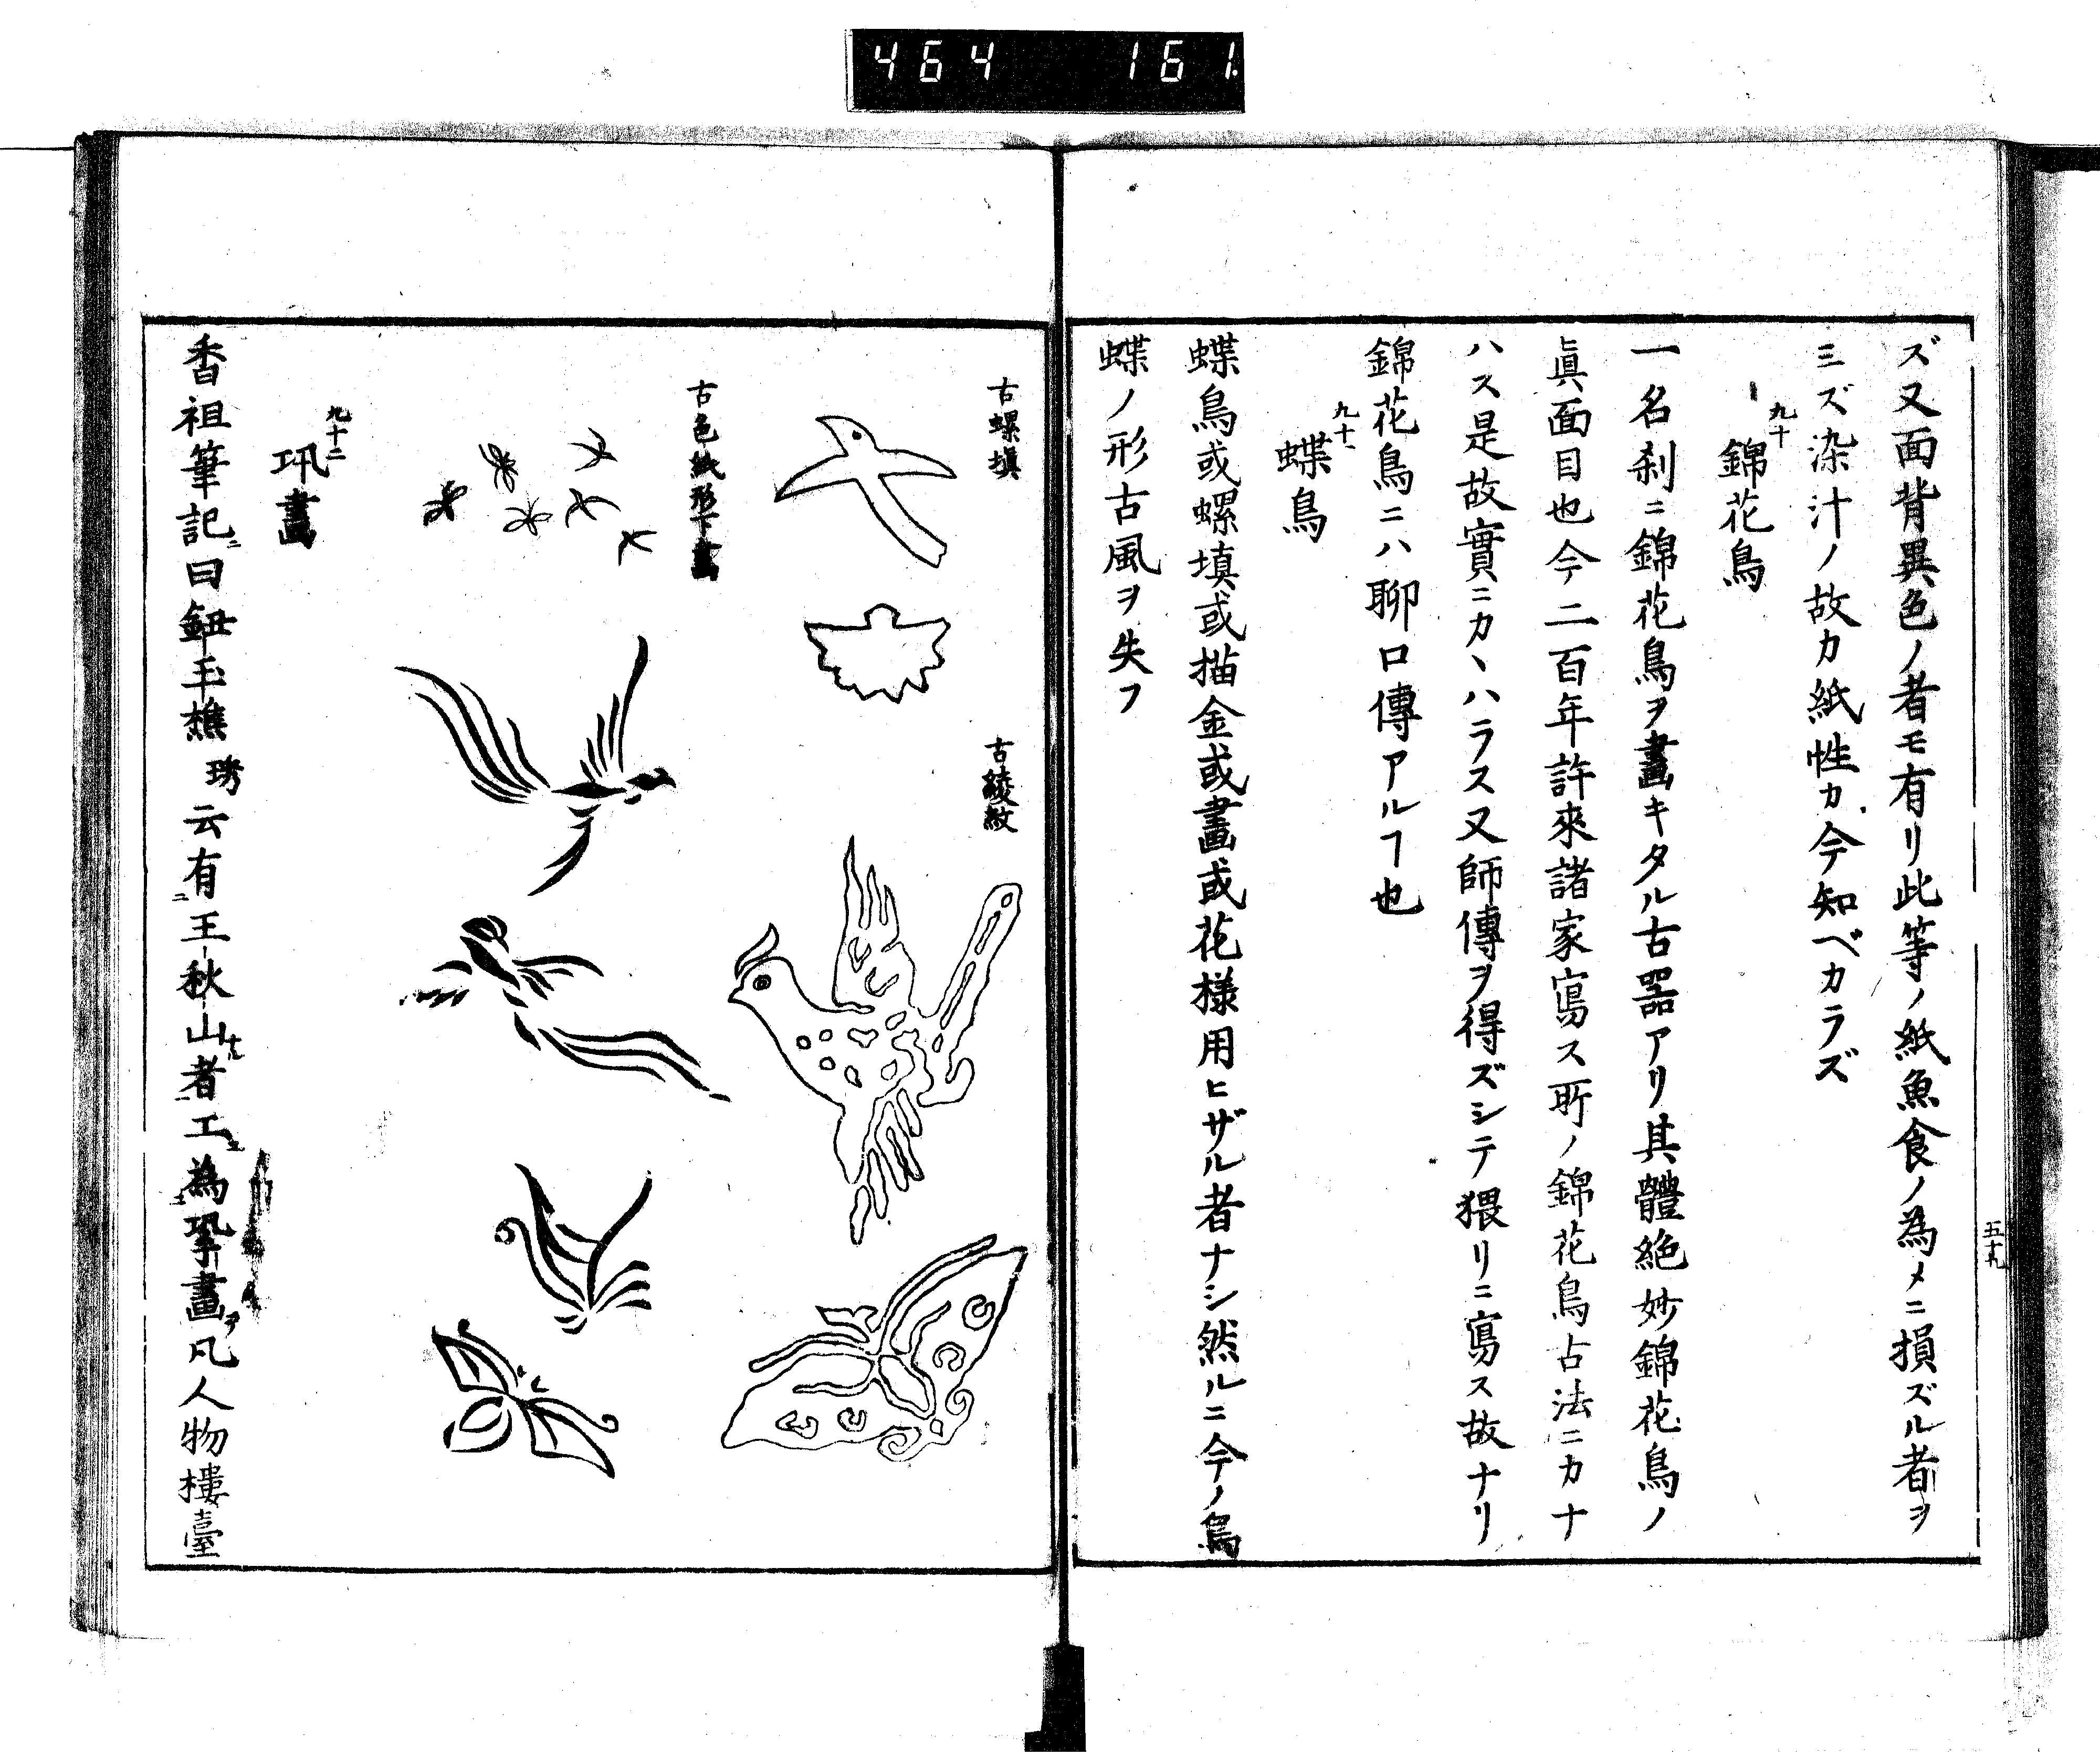 464 161.
ズ又面背異色ノ者モ有リ此等ノ紙魚食ノ為メニ損ズル者ヲ
ミズ染汁ノ故カ紙性カ今知ベカラズ
九十
錦花鳥
一名刹ニ錦花鳥ヲ畫キタル古器アリ其體絶妙錦花鳥ノ
眞面目也今二百年許來諸家寫ス所ノ錦花鳥古法ニカナ
ハス是故實ニカヽハラス又師傳ヲ得ズシテ猥リニ寫ス故ナリ
錦花鳥ニハ聊口傳アルヿ也
九十一
蝶鳥
蝶鳥或螺填或描金或畫或花様用ヒザル者ナシ然ルニ今ノ鳥
蝶ノ形古風ヲ失フ
五十九
古螺填
古綾紋
古色紙形下畫
九十二
巩畫
香祖筆記曰鈕玉樵琇云有王秋山者工為鞏畫凡人物樓臺